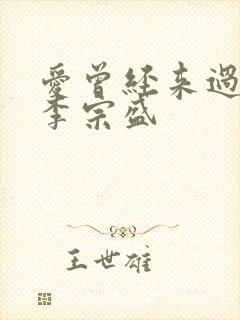 愛曾經來過
李宗盛
王世雄